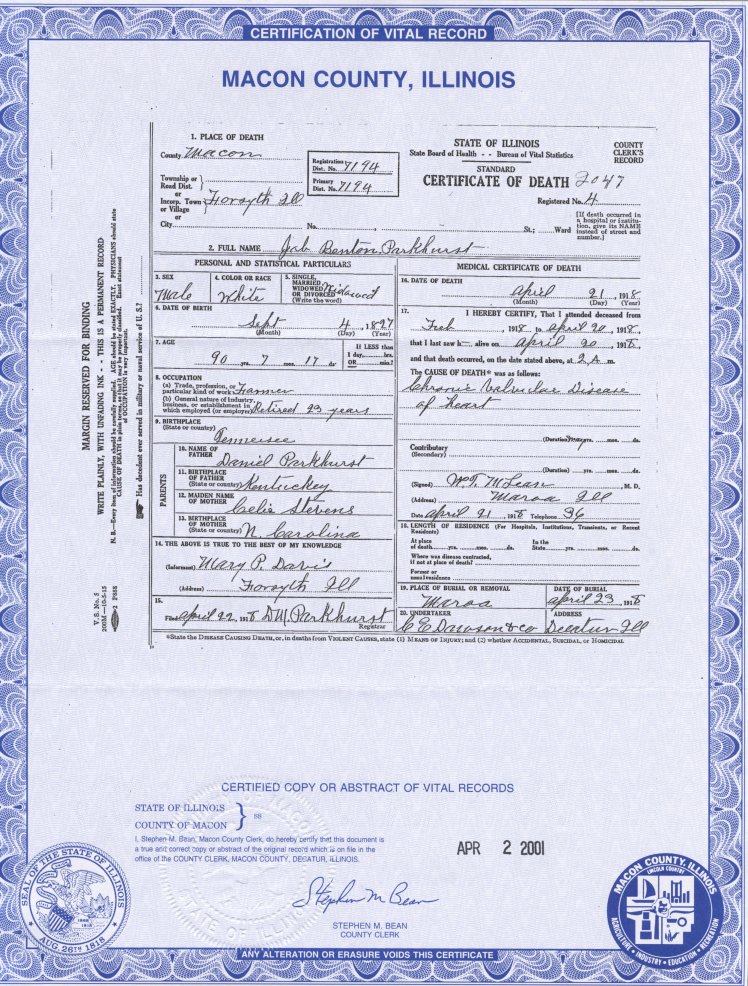 CERTIFICATION OF VITAL RECORD
MACON COUNTY, ILLINOIS
1. PLACE OF DEATH
County Macon
Registration Dist. No. 7194
Primary Dist. No. 7194
Township or Road Dist. or
Incorp. Town or Village or
Forsyth Ill
City No. , St.; Ward
STATE OF ILLINOIS
State Board of Health - - Bureau of Vital Statistics
COUNTY CLERK'S RECORD
STANDARD
CERTIFICATE OF DEATH 2047
Registered No. 4
[If death occurred in a hospital or institution, give its NAME instead of street and number.]
2. FULL NAME Benton Parkhurst
PERSONAL AND STATISTICAL PARTICULARS
3. SEX Male
4. COLOR OR RACE White
5. SINGLE, MARRIED WIDOWED OR DIVORCED (Write the word) Widowed
6. DATE OF BIRTH
Sept 4, 1827
(Month) (Day) (Year)
7. AGE
90 yrs. 7 mos. 17 ds.
If LESS than 1 day, hrs. OR min.?
8. OCCUPATION
(a) Trade, profession, or particular kind of work Farmer
(b) General nature of Industry, business, or establishment in which employed (or employer) Retired 23 years
9. BIRTHPLACE
(State or country) Tennessee
PARENTS
10. NAME OF FATHER Daniel Parkhurst
11. BIRTHPLACE OF FATHER (State or country) Kentuckey
12. MAIDEN NAME OF MOTHER Celie Stevens
13. BIRTHPLACE OF MOTHER (State or country) N. Carolina
14. THE ABOVE IS TRUE TO THE BEST OF MY KNOWLEDGE
(Informant) Mary P. Davis
(Address) Forsyth Ill
15.
Filed April 22, 1918 D M Parkhurst
Registrar
MEDICAL CERTIFICATE OF DEATH
16. DATE OF DEATH
April 21, 1918
(Month) (Day) (Year)
17. I HEREBY CERTIFY, That I attended deceased from
Feb , 1918 to April 20, 1918,
that I last saw h alive on April 20 1918
and that death occurred, on the date stated above, at 2 A m.
The CAUSE OF DEATH* was as follows:
Chronic Valvular Disease
of heart
(Duration) yrs. mos. ds.
Contributory
(Secondary)
(Duration) yrs. mos. ds.
(Signed) W. T. McLean, M. D.
(Address) Maroa Ill
Date April 21, 1918 Telephone 36
18. LENGTH OF RESIDENCE (For Hospitals, Institutions, Transients, or Recent Residents)
At place of death yrs. mos. ds. In the State yrs. mos. ds.
Where was disease contracted, if not at place of death?
Former or usual residence
19. PLACE OF BURIAL OR REMOVAL
Maroa
DATE OF BURIAL
April 23, 1918
20. UNDERTAKER
C E Dawson & co
ADDRESS
Decatur Ill
*State the DISEASE CAUSING DEATH, or, in deaths from VIOLENT CAUSES, state (1) MEANS OF INJURY; and (2) whether ACCIDENTAL, SUICIDAL, or HOMICIDAL
MARGIN RESERVED FOR BINDING
WRITE PLAINLY, WITH UNFADING INK - - THIS IS A PERMANENT RECORD
N. B.—Every item of information should be carefully supplied. AGE should be stated EXACTLY. PHYSICIANS should state
CAUSE OF DEATH in plain terms, so that it may be properly classified. Exact statement
of OCCUPATION is very important.
Has decedent ever served in military or naval service of U. S.?
V. S. No. 5
200M—10-5-15
CERTIFIED COPY OR ABSTRACT OF VITAL RECORDS
STATE OF ILLINOIS
COUNTY OF MACON
SS
I, Stephen M. Bean, Macon County Clerk, do hereby certify that this document is
a true and correct copy or abstract of the original record which is on file in the
office of the COUNTY CLERK, MACON COUNTY, DECATUR, ILLINOIS.
APR 2 2001
Stephen M Bean
STEPHEN M. BEAN
COUNTY CLERK
SEAL OF THE STATE OF ILLINOIS
AUG. 26TH 1818
MACON COUNTY, ILLINOIS
LINCOLN COUNTRY
AGRICULTURE • INDUSTRY • EDUCATION • RECREATION
ANY ALTERATION OR ERASURE VOIDS THIS CERTIFICATE